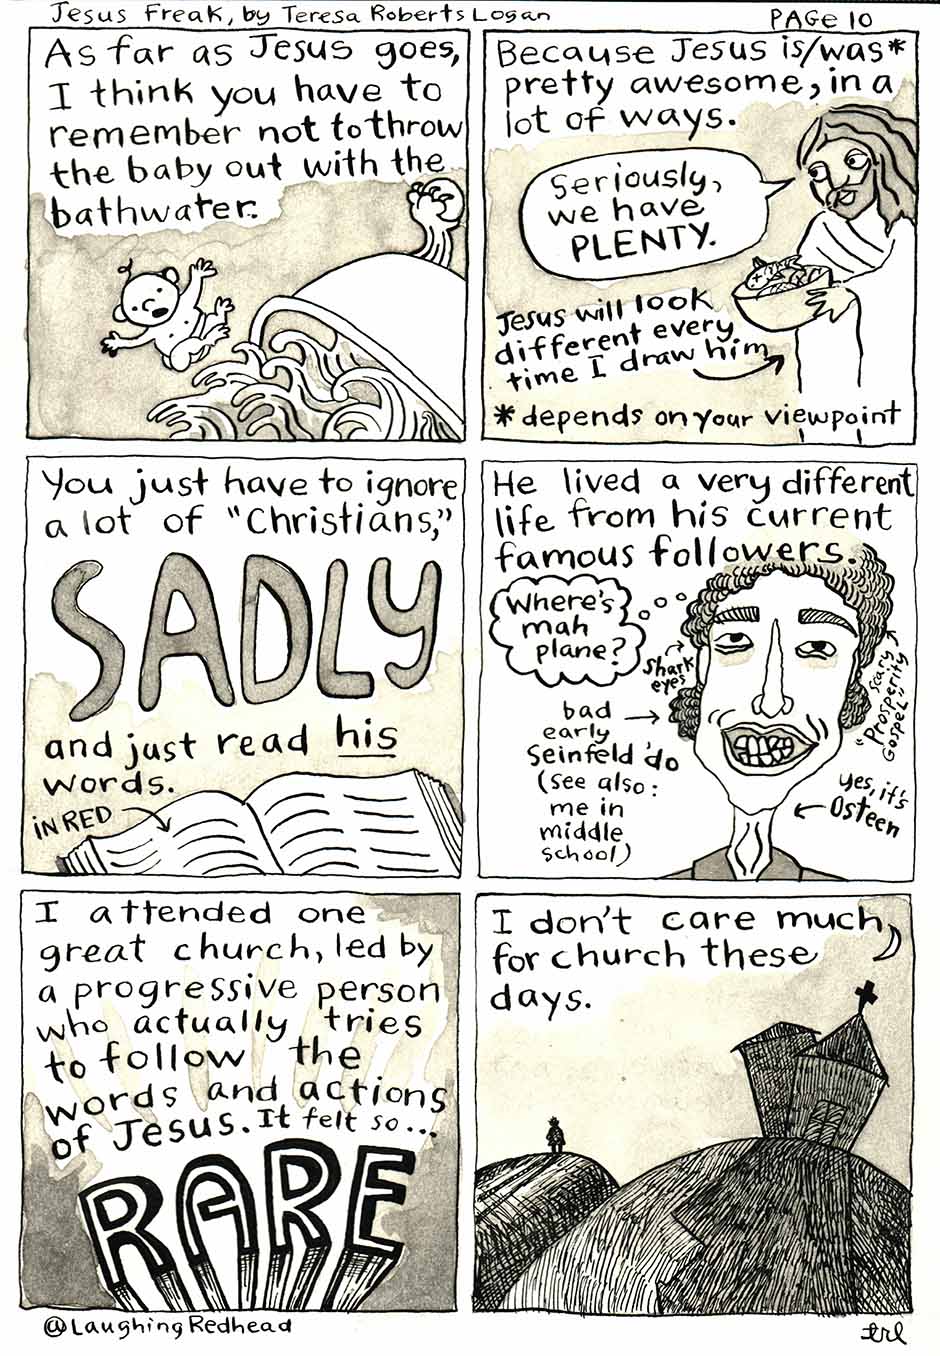 Jesus Freak, by Teresa Roberts Logan
PAGE 10
As far as Jesus goes,
I think you have to
remember not to throw
the baby out with the
bathwater.
Because Jesus is/was*
pretty awesome, in a
lot of ways.
Seriously,
we have
PLENTY.
Jesus will look
different every
time I draw him
* depends on your viewpoint
You just have to ignore
a lot of "Christians,"
SADLY
and just read his
words.
in RED
He lived a very different
life from his current
famous followers.
Where's
mah
plane?
Shark
eyes
bad
early
Seinfeld 'do
(see also:
me in
middle
school)
scary
"Prosperity
Gospel"
yes, it's
Osteen
I attended one
great church, led by
a progressive person
who actually tries
to follow the
words and actions
of Jesus. It felt so...
RARE
I don't care much
for church these
days.
@LaughingRedhead
trl